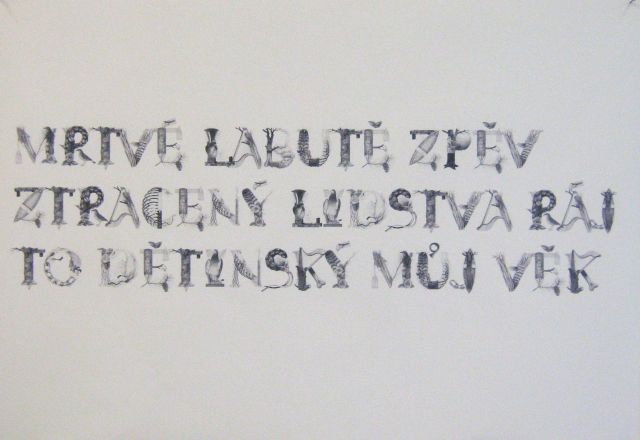 MRTVÉ LABUTĚ ZPĚV
ZTRACENÝ LIDSTVA RÁJ
TO DĚTINSKÝ MŮJ VĚK